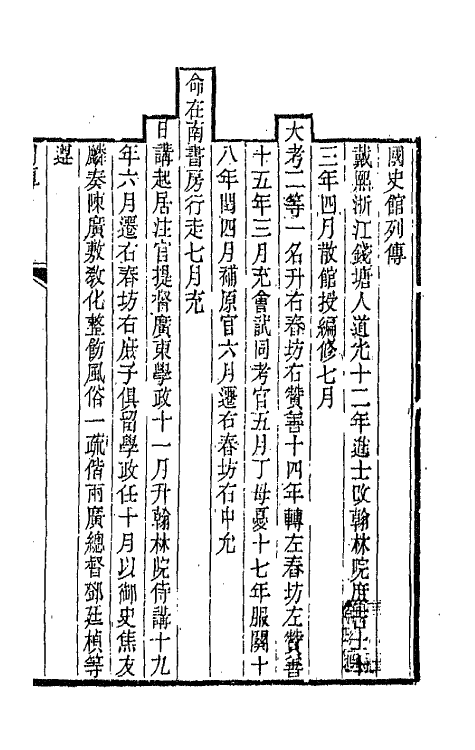 國史館列傳
戴熙浙江錢塘人道光十二年進士改翰林院庶吉士十
三年四月散館授編修七月
大考二等一名升右春坊右贊善十四年轉左春坊左贊善
十五年三月充會試同考官五月丁母憂十七年服闋十
八年閏四月補原官六月遷右春坊右中允
命在南書房行走七月充
日講起居注官提督廣東學政十一月升翰林院侍講十九
年六月遷右春坊右庶子俱留學政任十月以御史焦友
麟奏陳廣敷敎化整飭風俗一疏偕兩廣總督鄧廷楨等
遵